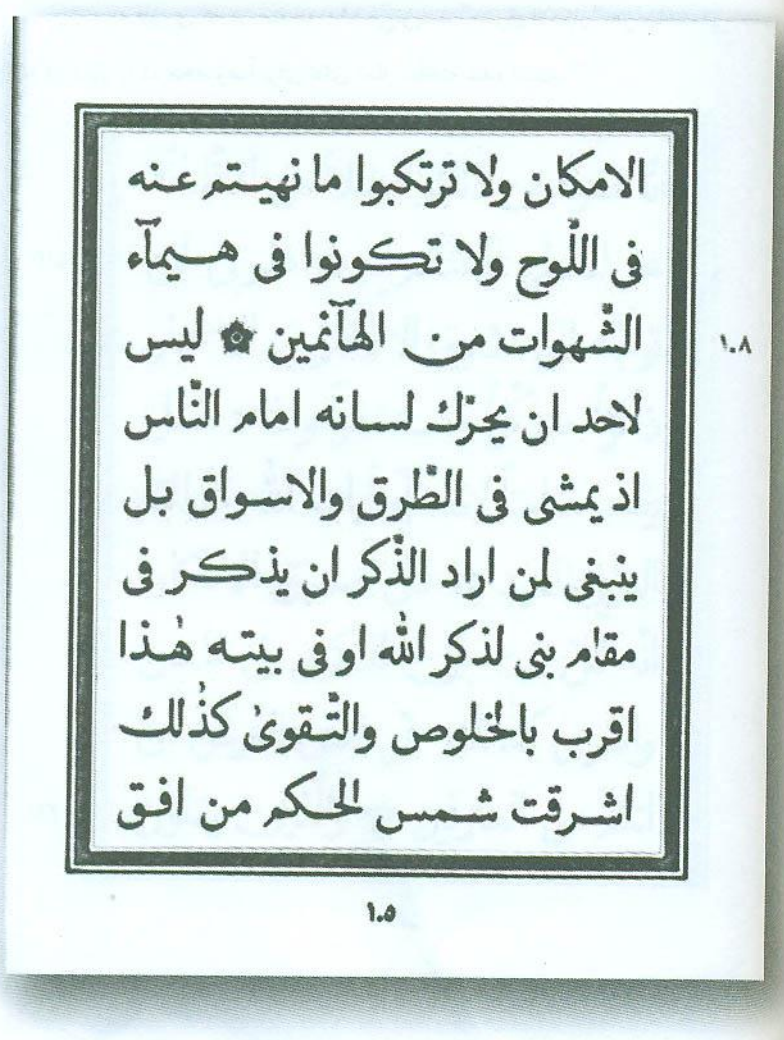 الامكان ولا ترتكبوا ما نهيتم عنه
فى اللّوح ولا تكونوا فى هيمآء
الشّهوات من الهآئمين ۞ ليس
١٠٨
لاحد ان يحرّك لسانه امام النّاس
اذ يمشى فى الطّرق والاسواق بل
ينبغى لمن اراد الذّكر ان يذكر فى
مقام بنى لذكر الله او فى بيته هٰذا
اقرب بالخلوص والتّقوىٰ كذٰلك
اشرقت شمس الحكم من افق
١٠٥